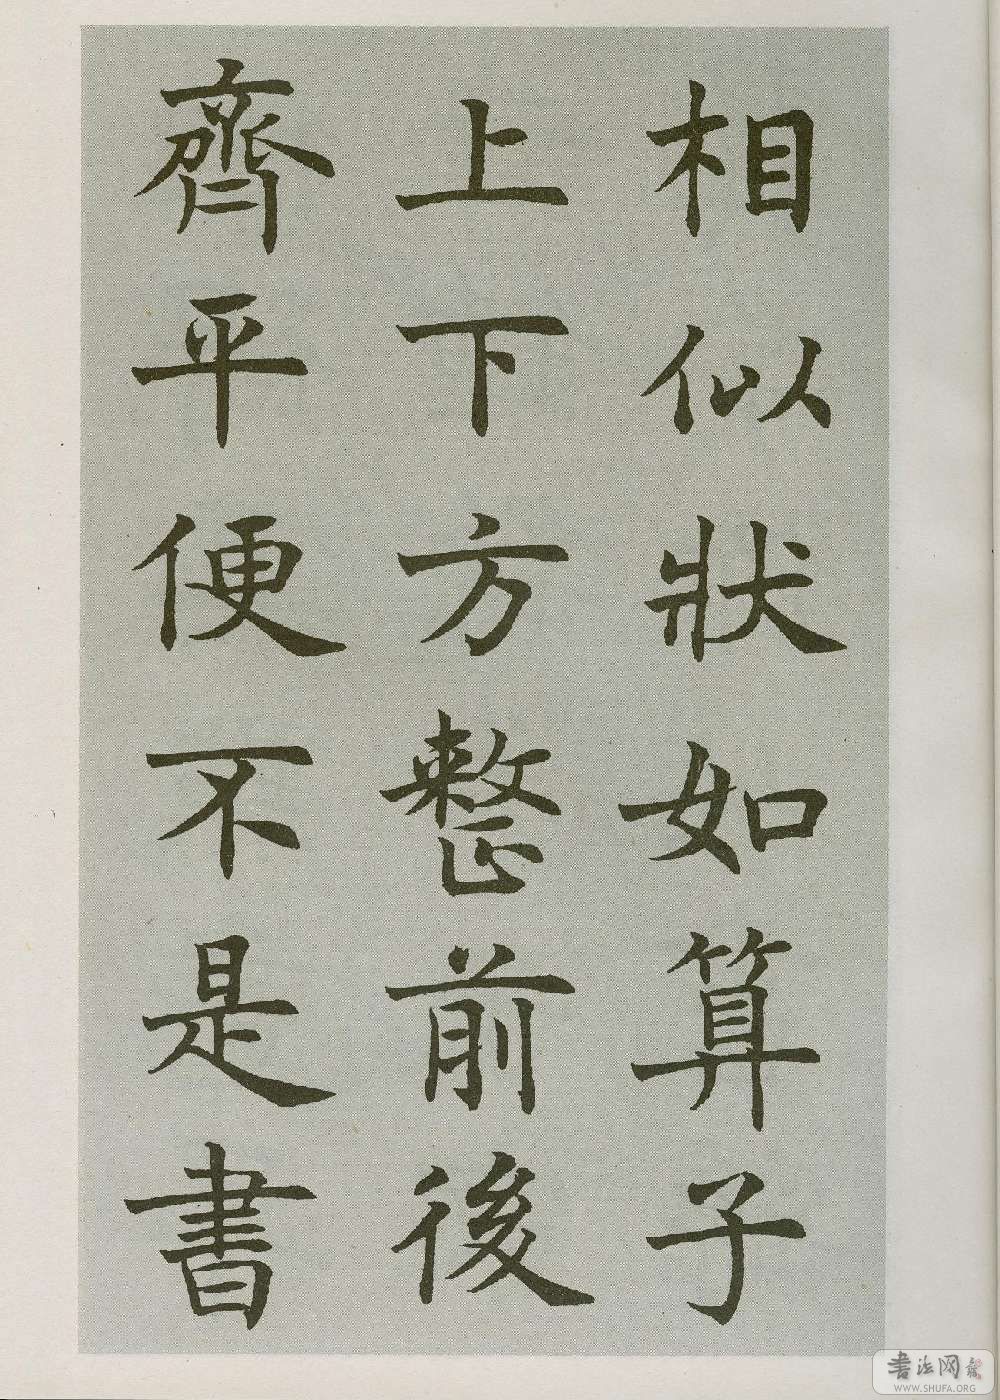 相似狀如算子
上下方整前後
齊平便不是書
書法网
WWW.SHUFA.ORG